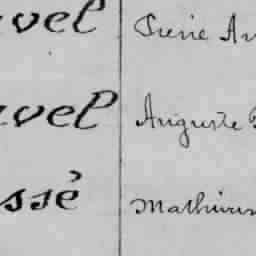 vel Pierre Au
avel Auguste
ssé Mathurin